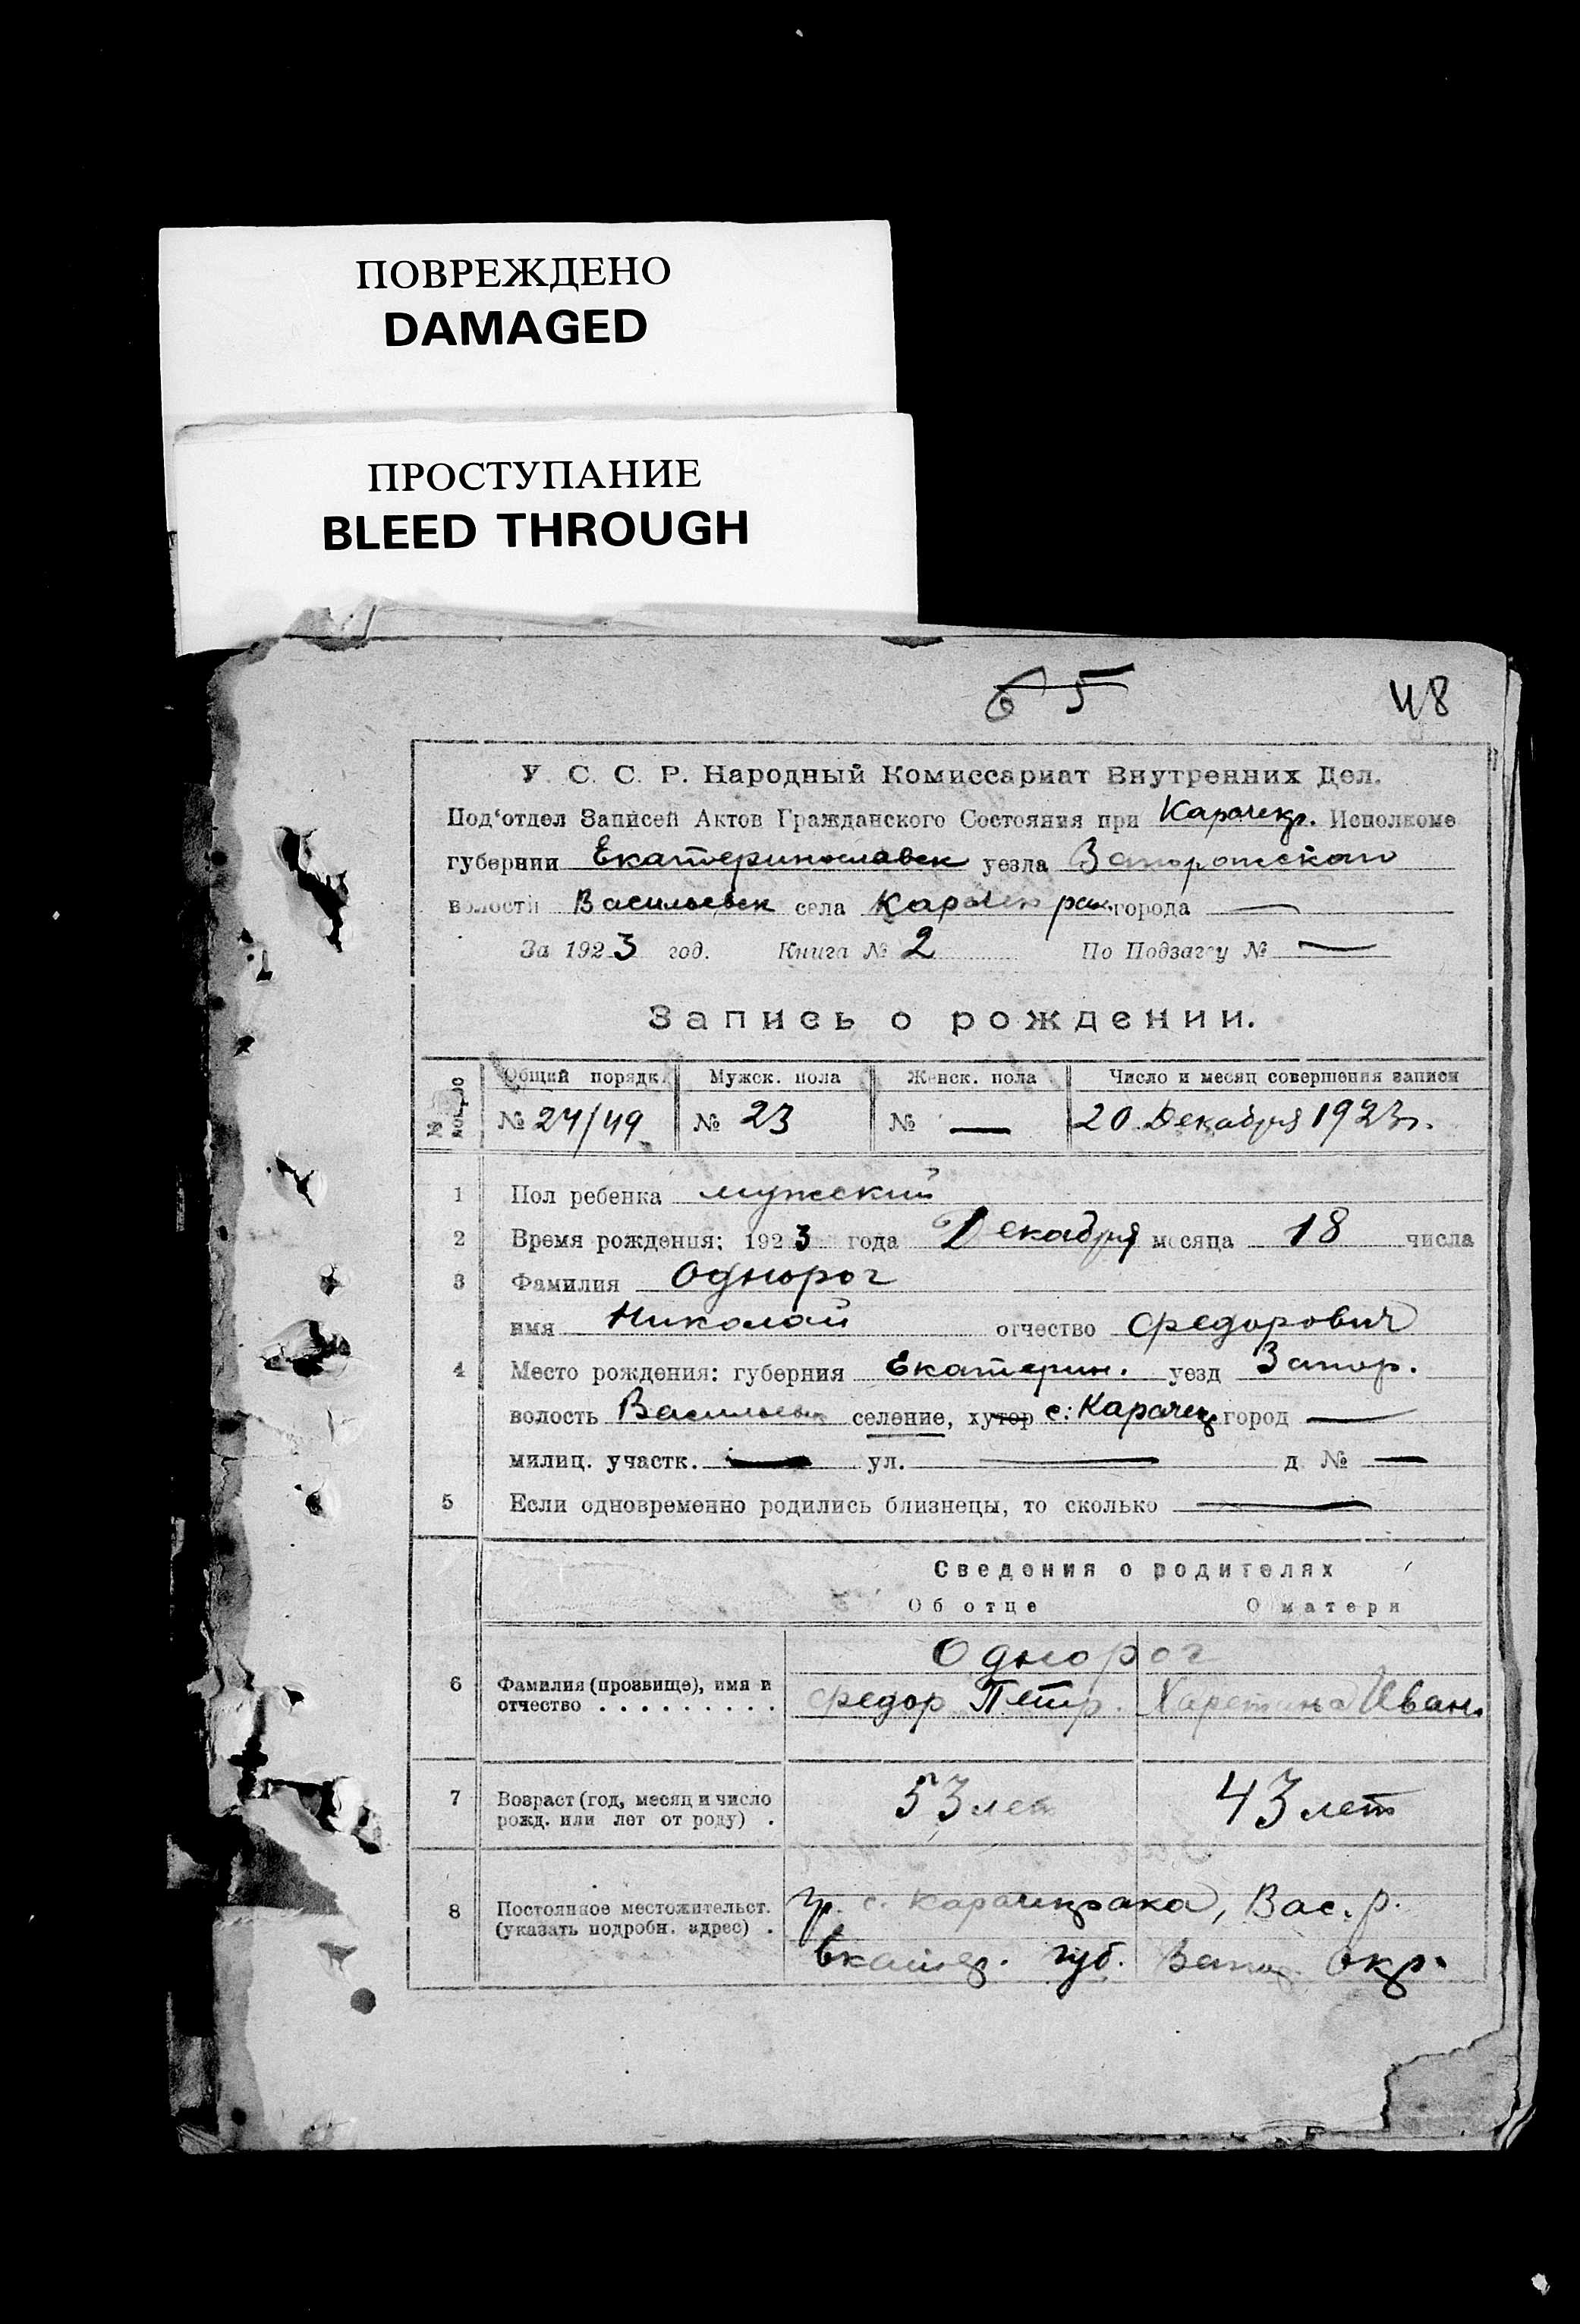 ПОВРЕЖДЕНО
DAMAGED
ПРОСТУПАНИЕ
BLEED THROUGH
65 48
У. С. С. Р. Народный Комиссариат Внутренних Дел.
Под'отдел Записей Актов Гражданского Состояния при Карачекр. Исполкоме
губернии Екатеринославск уезда Запорожского
волости Васильевск села Карачекрак города —
За 1923 год. Книга № 2 По Подзагсу № —
Запись о рождении.
Общий порядк. Мужск. пола Женск. пола Число и месяц совершения записи
№ 27/49 № 23 № — 20 Декабря 1923 г.
1 Пол ребенка мужский
2 Время рождения: 1923 года Декабря месяца 18 числа
3 Фамилия Однорог
имя Николай отчество Федорович
4 Место рождения: губерния Екатерин. уезд Запор.
волость Васильевск селение, хутор с: Карачекр город —
милиц. участк. — ул. — д № —
5 Если одновременно родились близнецы, то сколько —
Сведения о родителях
Об отце О матери
Однорог
6 Фамилия (прозвище), имя и отчество . . . . . . . . . Федор Петр. Харетина Иван.
7 Возраст (год, месяц и число рожд. или лет от роду) . 53 лет 43 лет
8 Постоянное местожительст. (указать подробн. адрес) . гр. с. Карачекрака, Вас. р.
Екатер. губ. Запор. Окр.